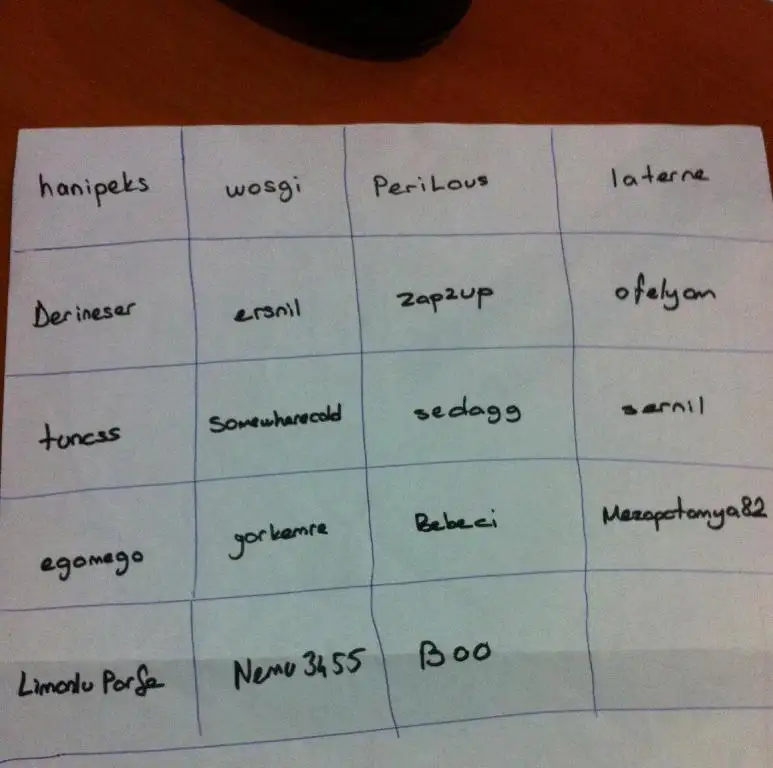 hanipeks wosgi Perilous laterne
Derineser ersnil zap2up ofelyam
tuncss somewherecold sedagg sernil
egomego gorkemre Bebeci Mezopotamya82
Limonlu Nemu3455 Boo